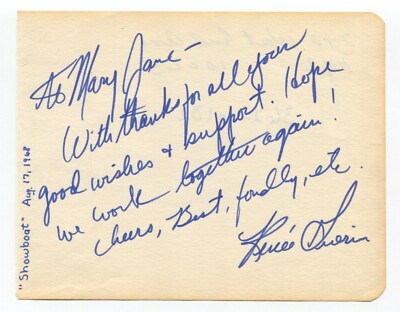 To Mary Jane -
With thanks for all your
good wishes & support. Hope
we work together again!
Cheers, Best, fondly, etc.
Renée Guerin
"Showboat" Aug. 17, 1968